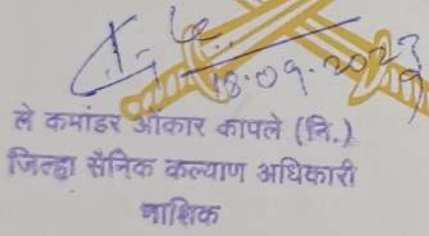 18.09.2023
ले कमांडर ओंकार कापले (नि.)
जिल्हा सैनिक कल्याण अधिकारी
नाशिक